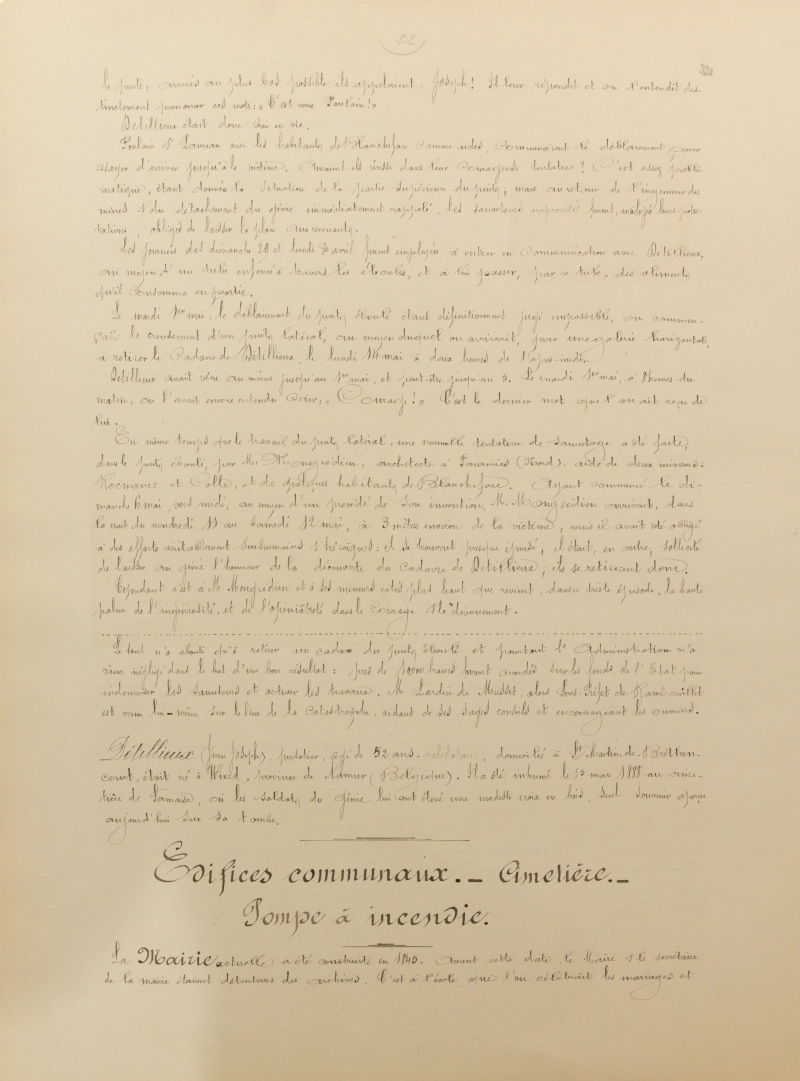 22
le puits, arrivés au plus bas possible ils appelaient : Joseph ! Il leur répondit et on l'entendit dis-
tinctement prononcer ces mots : « C'est vous Poulain ! »
Détillieux était donc en vie.
Poulain & avec les habitants de Blancheface commandés, commencèrent le déblaiement pour
essayer d'arriver jusqu'à la victime. Auraient-ils réussi dans leur courageuse tentative ? C'est assez problé-
matique, étant donnée la situation de la partie supérieure du puits ; mais au retour de l'ingénieur des
mines & du détachement du génie immédiatement rappelé, les sauveteurs improvisés furent, malgré leurs protes-
tations, obligés de laisser la place aux revenants.
Les journées des dimanche 29 et lundi 30 avril furent employées à entrer en communication avec Détillieux,
au moyen d'un tube enfoncé à travers les éboulis, et à lui passer, par ce tube, des aliments
qu'il consomma en partie.
Le mardi 1er mai, le déblaiement du puits éboulé étant définitivement jugé impossible, on commen-
çait le creusement d'un puits latéral, au moyen duquel on arrivait, par une galerie horizontale,
à retirer le cadavre de Détillieux, le lundi 14 mai à deux heures de l'après-midi.
Détillieux avait vécu au moins jusqu'au 1er mai, et peut-être jusqu'au 3. Le mardi 1er mai, à heures du
matin, on l'avait encore entendu crier : « Courage ! » C'est le dernier mot que l'on ait reçu de
lui.
En même temps que le travail du puits latéral, une nouvelle tentative de sauvetage a été faite,
dans le puits éboulé, par Mr Mongrédien, architecte à Fourmies (Nord) aidé de deux mineurs :
Rocmance et Colle, et de quelques habitants de Blancheface. Ayant commencé le di-
manche 6 mai, vers midi, au moyen d'un procédé de son invention, M. Mongrédien arrivait, dans
la nuit du vendredi 11 au samedi 12 mai, à 3 mètres environ de la victime ; mais il avait été obligé
à des efforts véritablement surhumains & héroïques : et se trouvant presque épuisé, il était, en outre, sollicité
de laisser au génie l'honneur de la découverte du cadavre de Détillieux ; ils se retirèrent donc.
Cependant c'est à M. Mongrédien et à ses mineurs cités plus haut que revient, dans ce triste épisode, la haute
palme de l'ingéniosité, et de l'opiniâtreté dans le courage & le dévouement.
Le tout n'a abouti qu'à retirer un cadavre du puits éboulé et pourtant l'Administration n'a
rien négligé dans le but d'un bon résultat : près de 10000 francs furent accordés sur les fonds de l'Etat pour
indemniser les sauveteurs et activer les travaux. M. Lardin de Musset, alors Sous-Préfet de Rambouillet
est venu lui-même sur le lieu de la catastrophe, aidant de ses sages conseils et encourageant les ouvriers.
Détillieux (Jean Joseph), puisatier, âgé de 52 ans, célibataire, domicilié à St Martin-de-Bréthen-
court, était né à province de Namur (Belgique). Il a été inhumé le 15 mai 1888 au cime-
tière de Sermaise, où les soldats du génie lui ont élevé une modeste croix en bois, seul souvenir aperçu
aujourd'hui sur sa tombe.
Edifices communaux. — Cimetière. —
Pompe à incendie.
La Mairie actuelle a été construite en 1845. Avant cette date, le Maire & le secrétaire
de la mairie étaient détenteurs des archives. C'est à l'école que l'on célébrait les mariages et